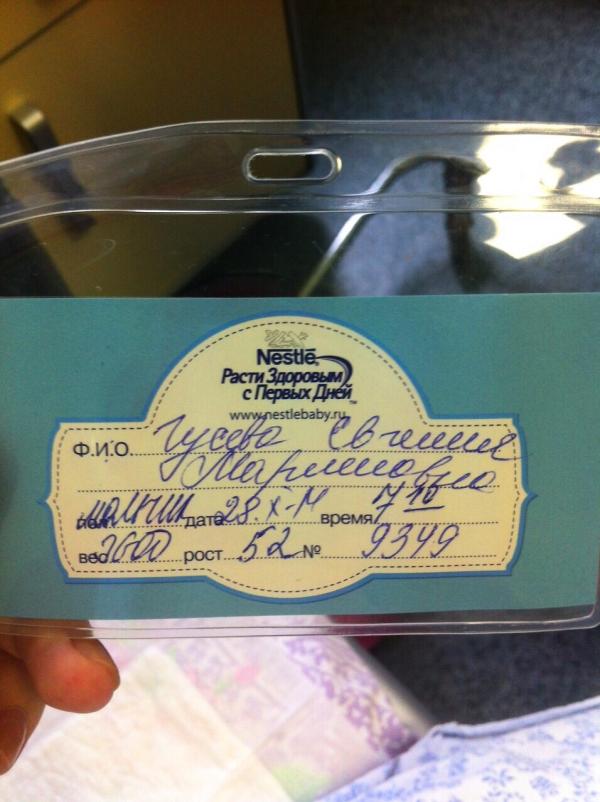 Nestlé
Расти Здоровым
с Первых Дней
www.nestlebaby.ru
Ф.И.О. Гусева Евгения
Марленовна
пол мальчик дата 28.X-14 время 7 10
вес 3600 рост 52 № 9349